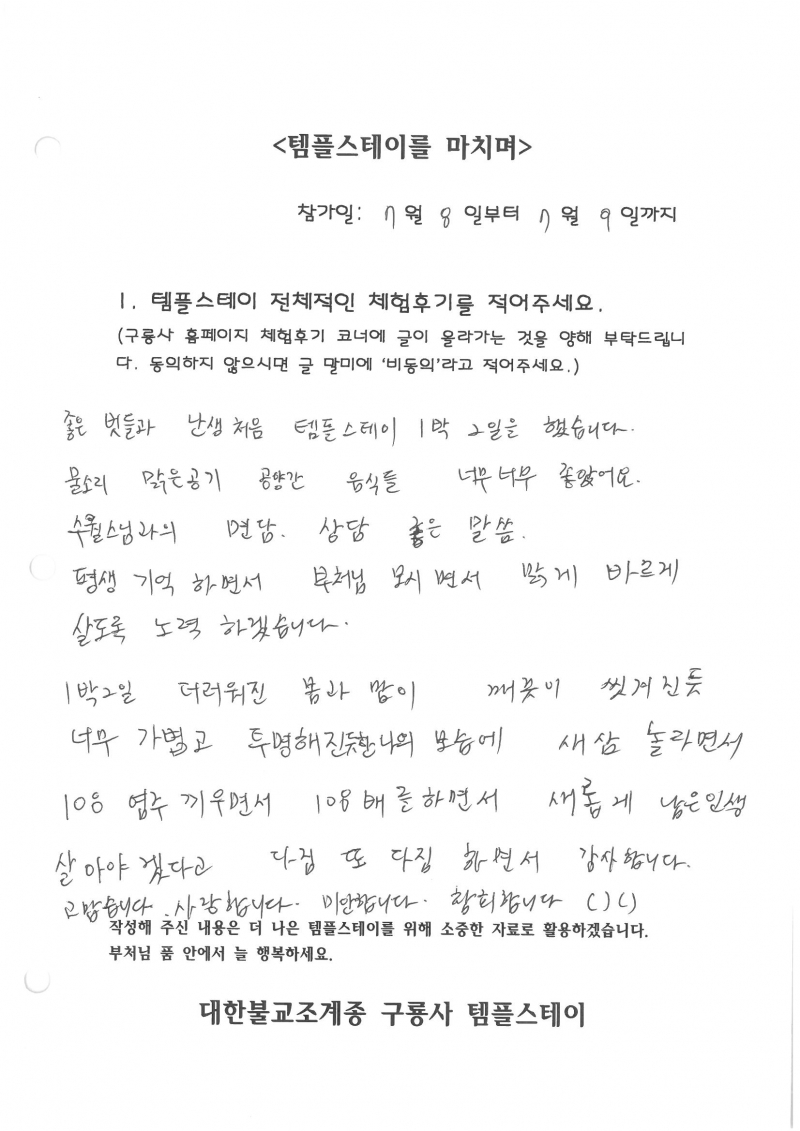 <템플스테이를 마치며>
참가일: 7월 8일부터 7월 9일까지
1. 템플스테이 전체적인 체험후기를 적어주세요.
(구룡사 홈페이지 체험후기 코너에 글이 올라가는 것을 양해 부탁드립니
다. 동의하지 않으시면 글 말미에 '비동의'라고 적어주세요.)
좋은 벗들과 난생처음 템플스테이 1박 2일을 했습니다.
물소리 맑은공기 공양간 음식들 너무너무 좋았어요.
스님과의 면담. 상담 좋은 말씀.
평생 기억 하면서 부처님 모시면서 맑게 바르게
살도록 노력 하겠습니다.
1박2일 더러워진 몸과 맘이 깨끗이 씻겨진듯
너무 가볍고 투명해진듯한 나의 모습에 새삼 놀라면서
108 염주 끼우면서 108배를하면서 새롭게 남은인생
살아야 겠다고 다짐 또 다짐 하면서 감사합니다.
고맙습니다. 사랑합니다. 미안합니다. 참회합니다 ()()
작성해 주신 내용은 더 나은 템플스테이를 위해 소중한 자료로 활용하겠습니다.
부처님 품 안에서 늘 행복하세요.
대한불교조계종 구룡사 템플스테이